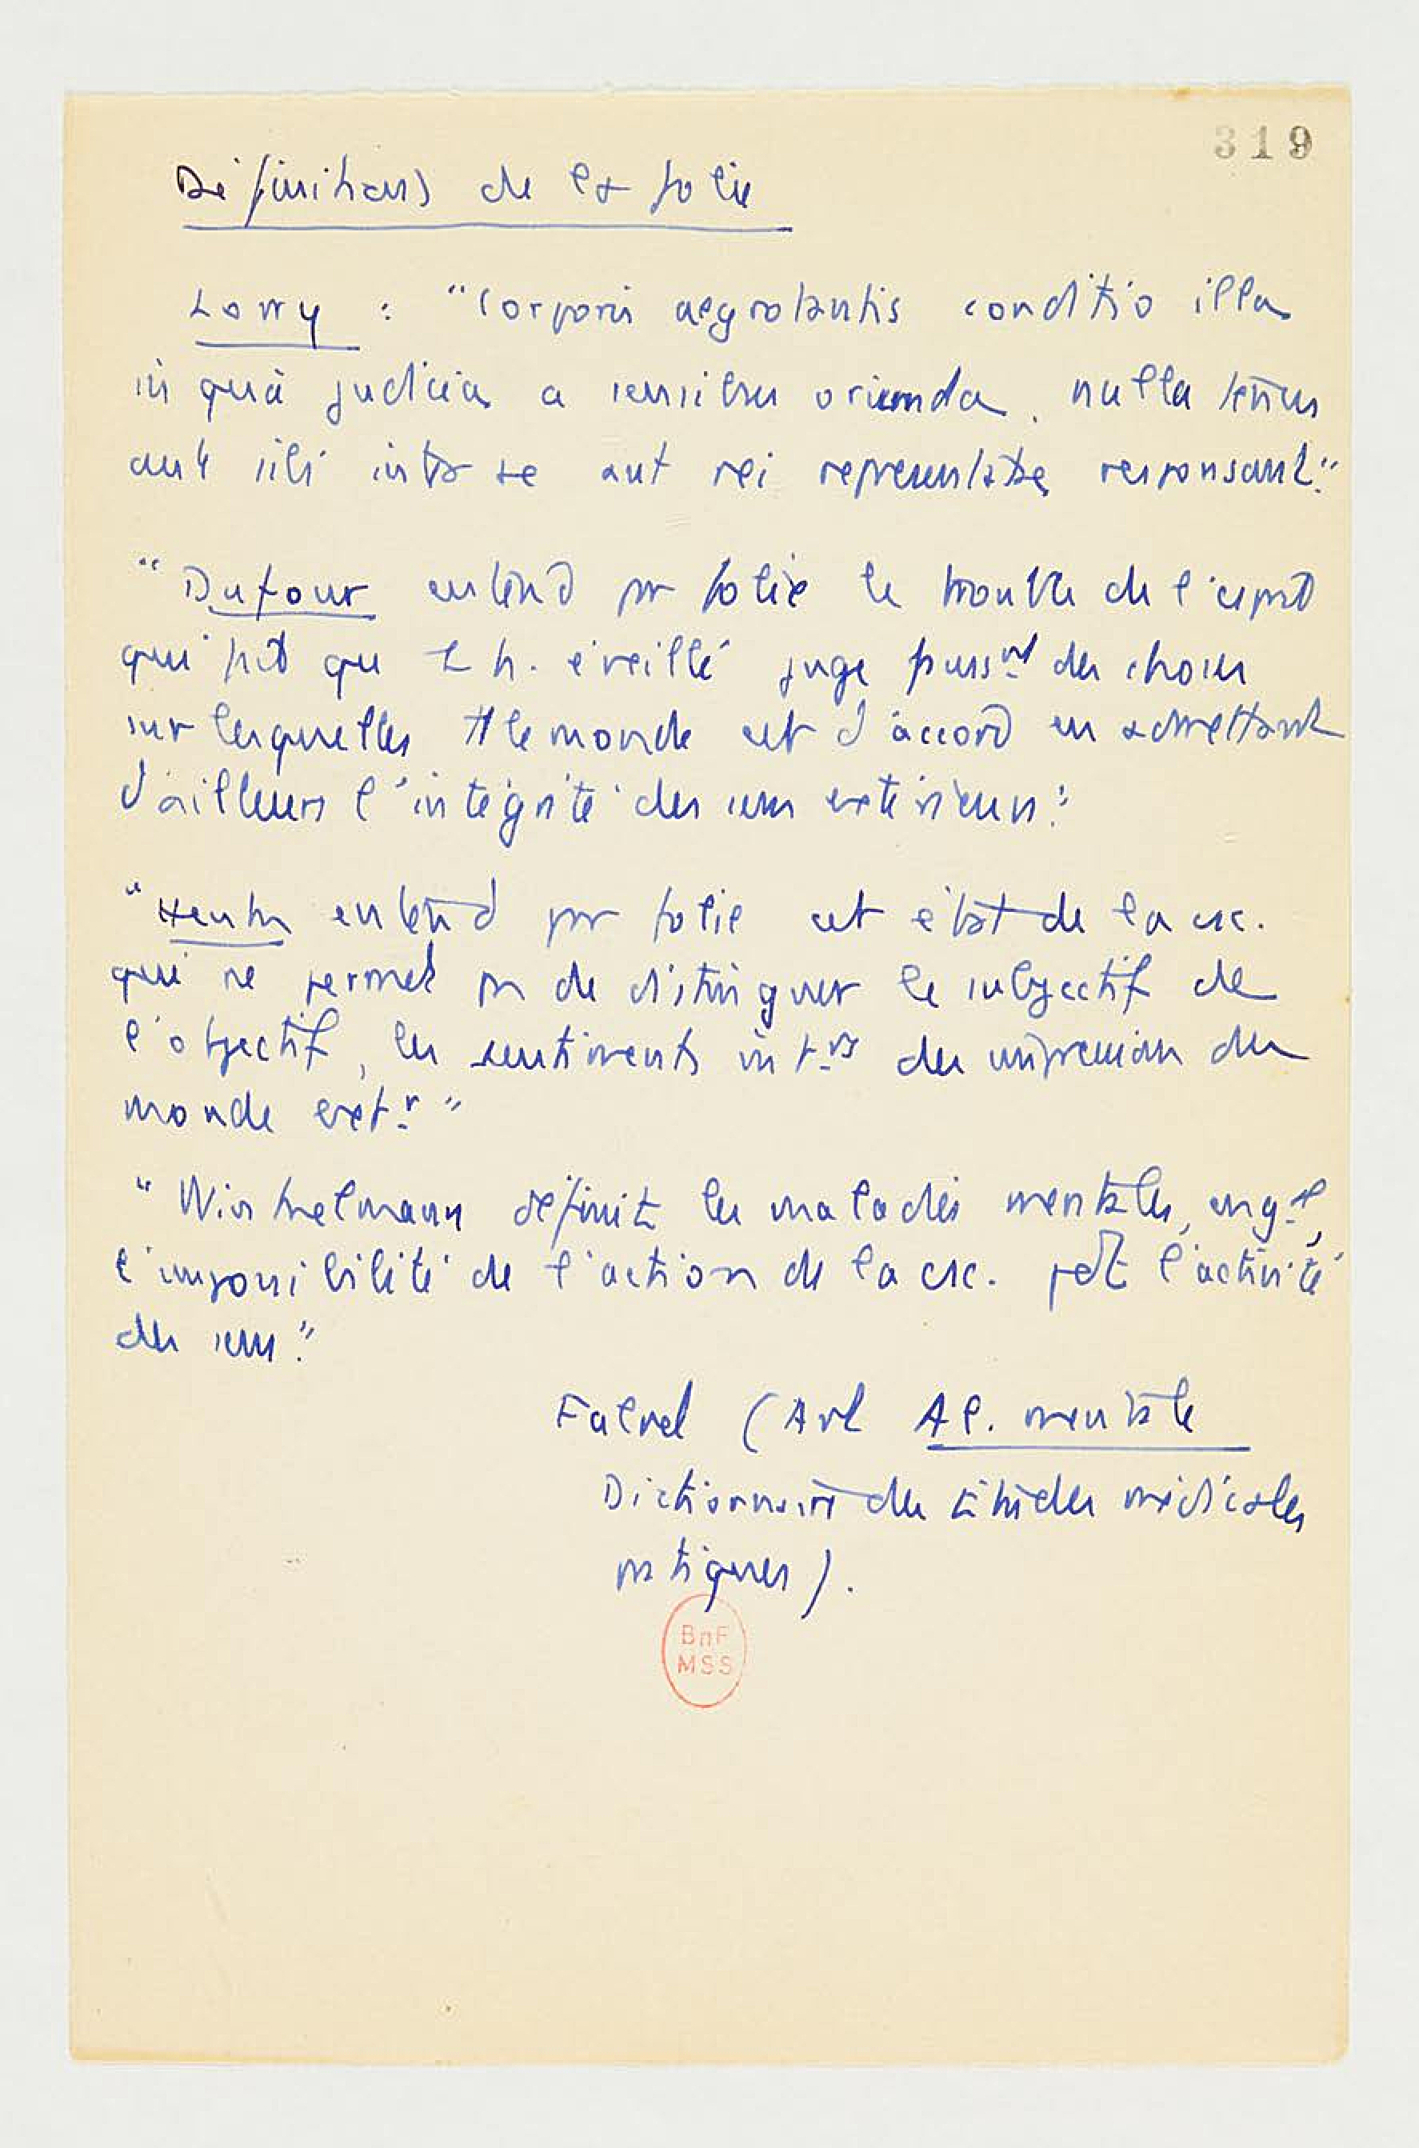 319
Définitions de la folie
Lorry : "Corporis aegrotantis conditio illa
in quâ judicia a sensibus oriunda, nulla tenus
aut sibi inter se aut rei representatae responsant."
"Dufour entend pr folie le trouble de l'esprit
qui fait que l h. éveillé juge faussnt des choses
sur lesquelles tt le monde est d'accord en admettant
d'ailleurs l'intégrité des sens extérieurs."
" entend pr folie cet état de la csc.
qui ne permet ps de distinguer le subjectif de
l'objectif, les sentiments intrs des impressions du
monde extr"
"Winkelmann définit les maladies mentales, en gal,
l'impossibilité de l'action de la csc. pdt l'activité
des sens."
Falret (Art Al. mentale
Dictionnaire des Etudes médicales
pratiques).
BnF
MSS